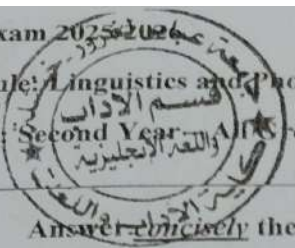 xam 2025-2026
ule: Linguistics and Pho
Second Year
Answer concisely the
قسم الاداب
واللغة الانجليزية
جامعة عباس لغرور
كلية الاداب واللغات